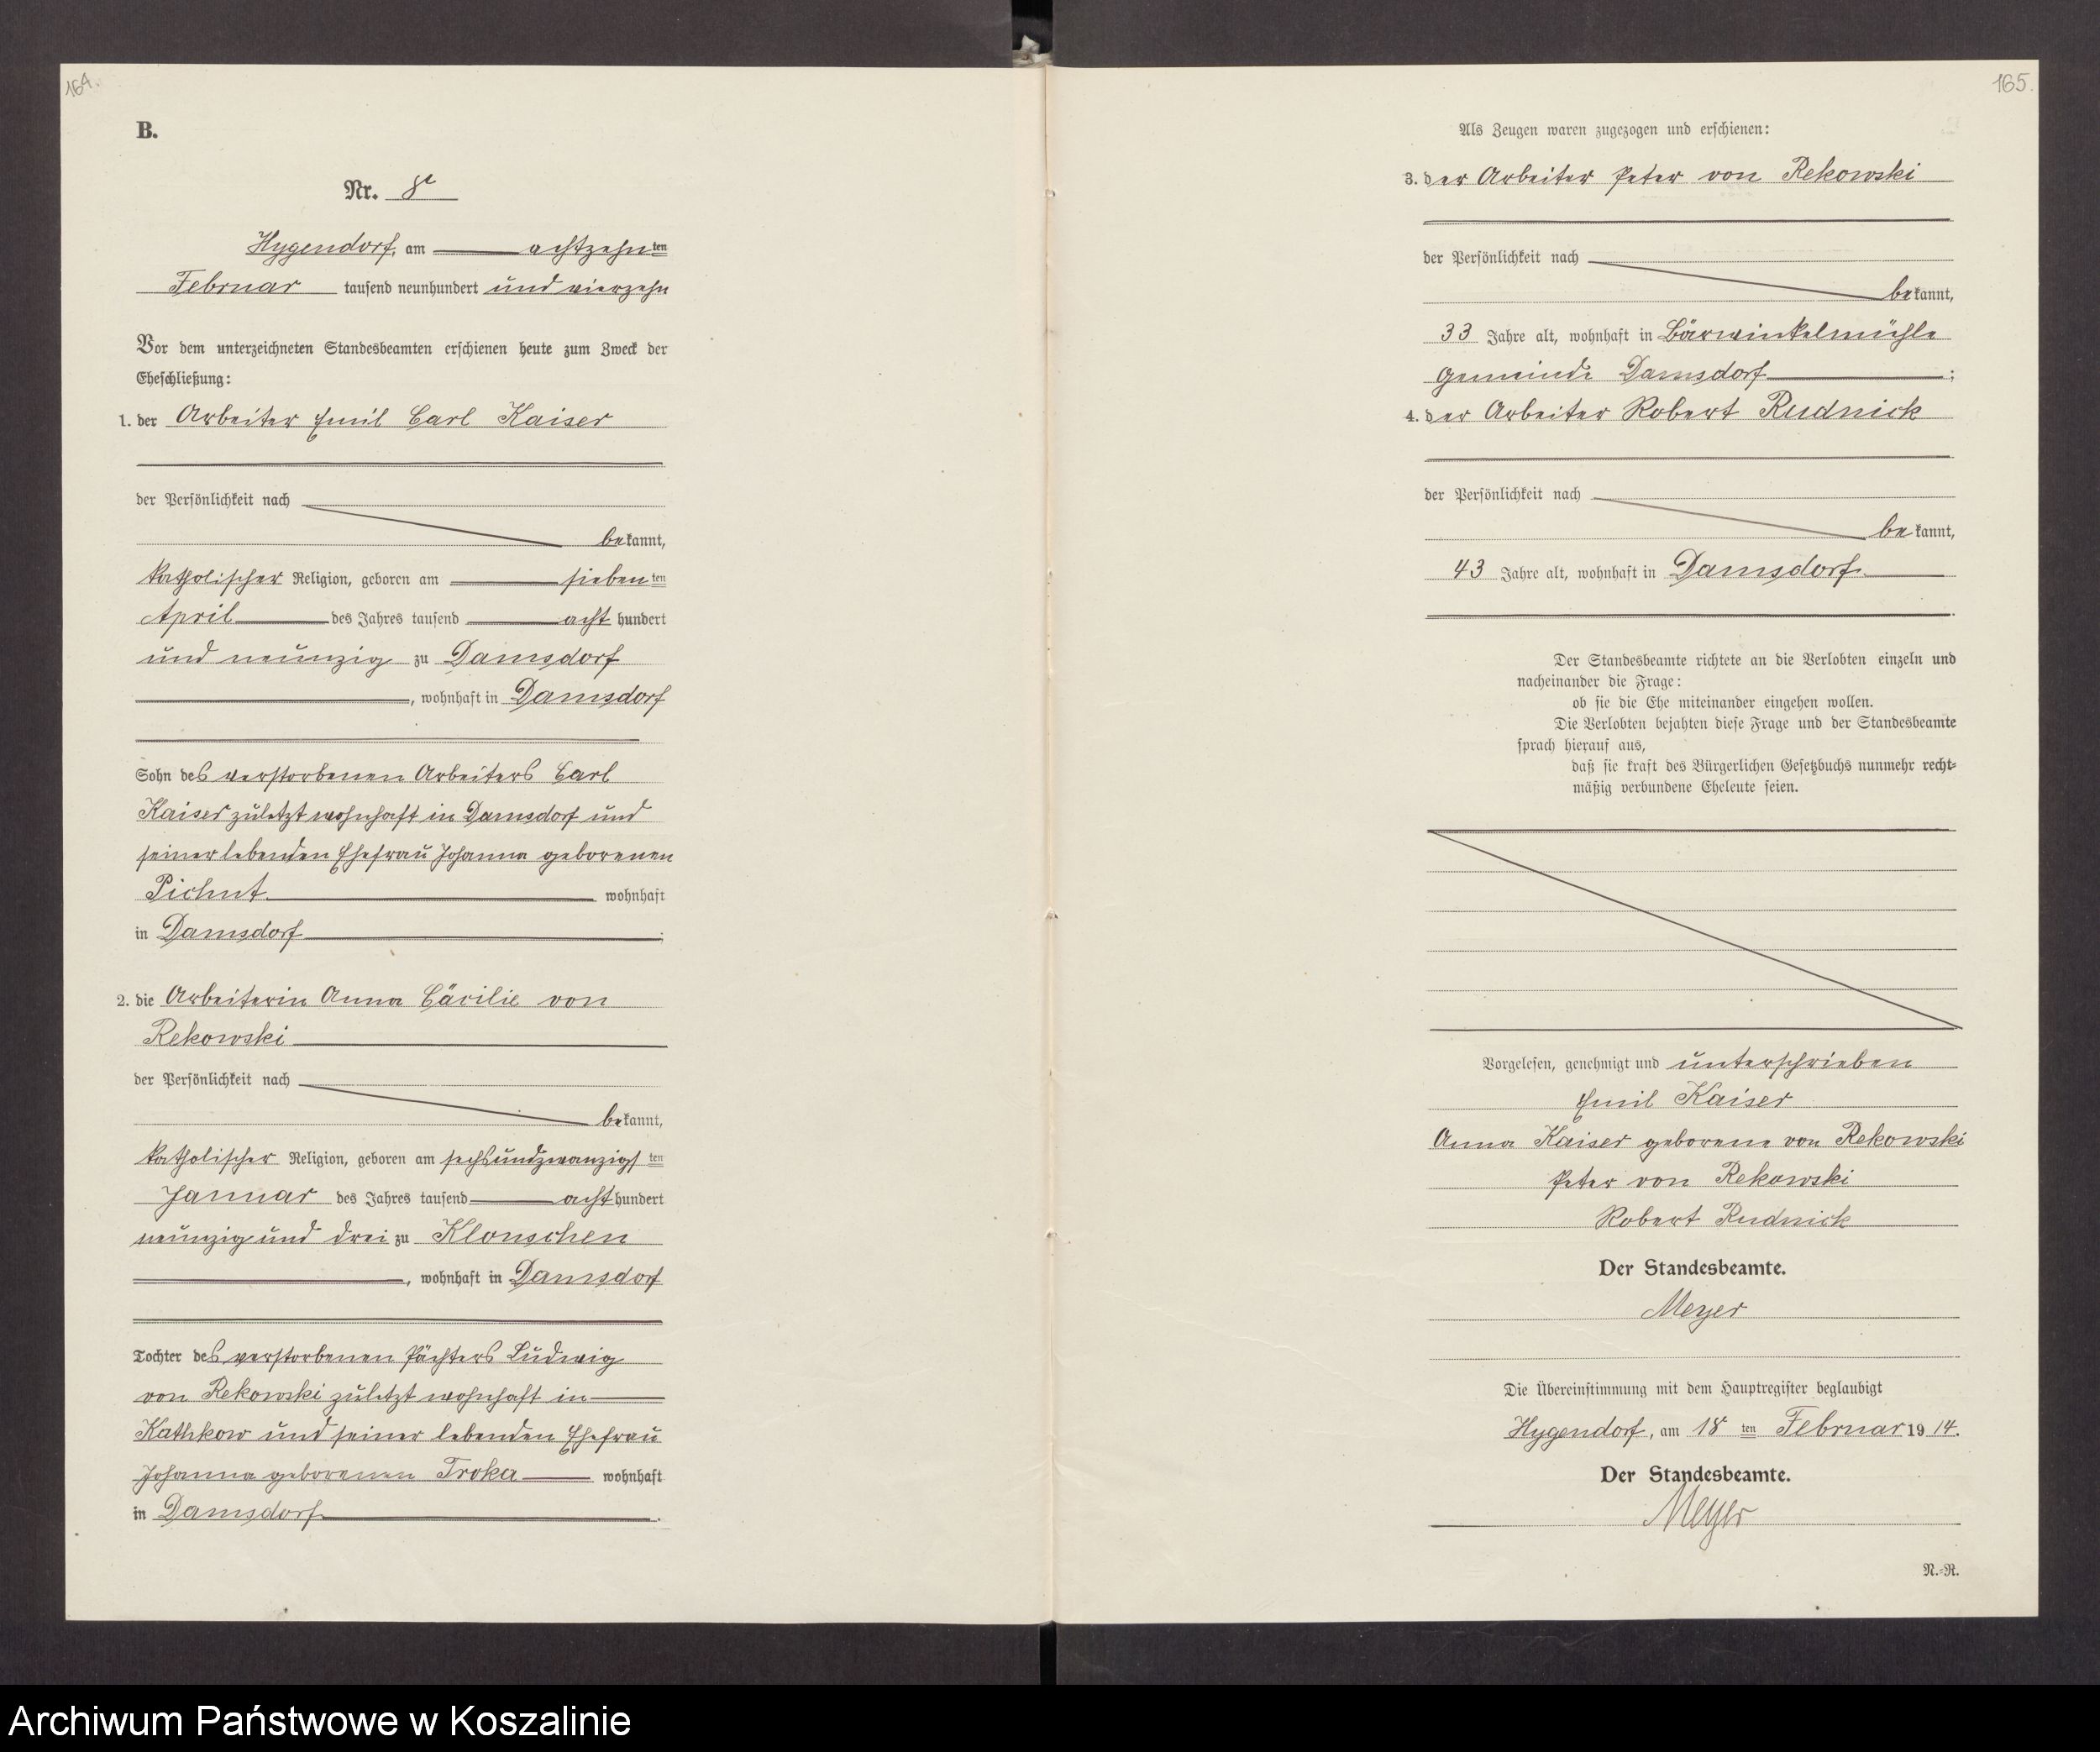 164.
B.
Nr. 8
Hygendorf, am achtzehnten
Februar tausend neunhundert und vierzehn
Vor dem unterzeichneten Standesbeamten erschienen heute zum Zweck der
Eheschließung:
1. der Arbeiter Emil Carl Kaiser
der Persönlichkeit nach
bekannt,
katholischer Religion, geboren am siebenten
April des Jahres tausend acht hundert
und neunzig zu Damsdorf
, wohnhaft in Damsdorf
Sohn des verstorbenen Arbeiters Carl
Kaiser zuletzt wohnhaft in Damsdorf und
seiner lebenden Ehefrau Johanna geborenen
wohnhaft
in Damsdorf ;
2. die Arbeiterin Anna Cäcilie von
Rekowski
der Persönlichkeit nach
bekannt,
katholischer Religion, geboren am sechsundzwanzigsten
Januar des Jahres tausend acht hundert
neunzig und drei zu Klonschen
, wohnhaft in Damsdorf
Tochter des verstorbenen Pächters Ludwig
von Rekowski zuletzt wohnhaft in
Kathkow und seiner lebenden Ehefrau
Johanna geborenen Troka wohnhaft
in Damsdorf .
165.
Als Zeugen waren zugezogen und erschienen:
3. der Arbeiter Peter von Rekowski
der Persönlichkeit nach
bekannt,
33 Jahre alt, wohnhaft in Bärwinkelmühle
Gemeinde Damsdorf ;
4. der Arbeiter Robert Rudnick
der Persönlichkeit nach
bekannt,
43 Jahre alt, wohnhaft in Damsdorf
.
Der Standesbeamte richtete an die Verlobten einzeln und
nacheinander die Frage:
ob sie die Ehe miteinander eingehen wollen.
Die Verlobten bejahten diese Frage und der Standesbeamte
sprach hierauf aus,
daß sie kraft des Bürgerlichen Gesetzbuchs nunmehr recht-
mäßig verbundene Eheleute seien.
Vorgelesen, genehmigt und unterschrieben
Emil Kaiser
Anna Kaiser geborene von Rekowski
Peter von Rekowski
Robert Rudnick
Der Standesbeamte.
Meyer
Die Übereinstimmung mit dem Hauptregister beglaubigt
Hygendorf, am 18 ten Februar 1914.
Der Standesbeamte.
Meyer
N.-R.
Archiwum Państwowe w Koszalinie